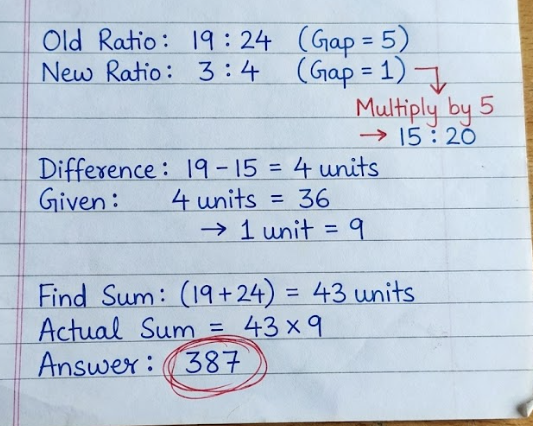 Old Ratio: 19 : 24 (Gap = 5)
New Ratio: 3 : 4 (Gap = 1)
Multiply by 5
→ 15 : 20
Difference: 19 - 15 = 4 units
Given: 4 units = 36
→ 1 unit = 9
Find Sum: (19+24) = 43 units
Actual Sum = 43 × 9
Answer: 387